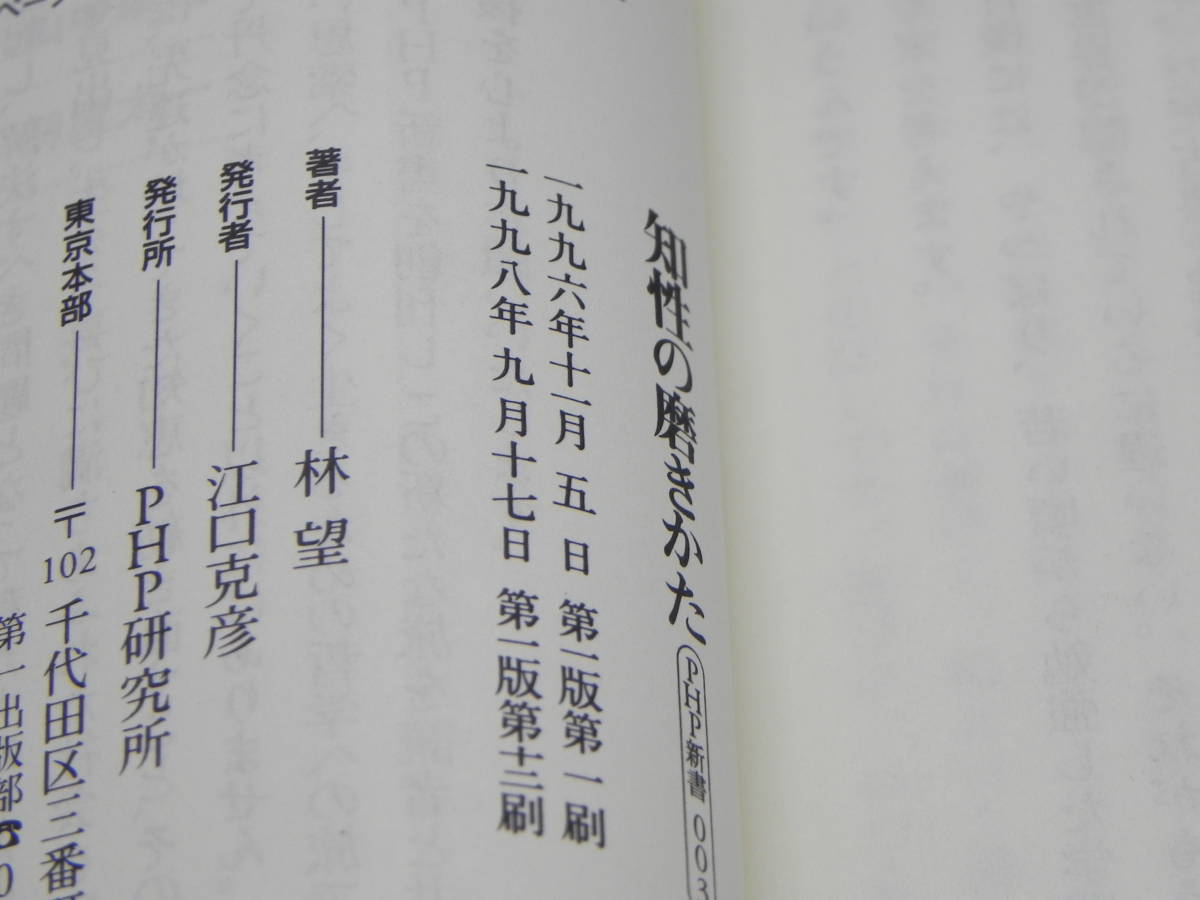 知性の磨きかた PHP新書 003
一九九六年十一月 五 日 第一版第一刷
一九九八年 九 月十七日 第一版第十三刷
著者―――林 望
発行者―――江口克彦
発行所―――PHP研究所
東京本部―――〒102 千代田区三番
第一出版部☎0
ページ